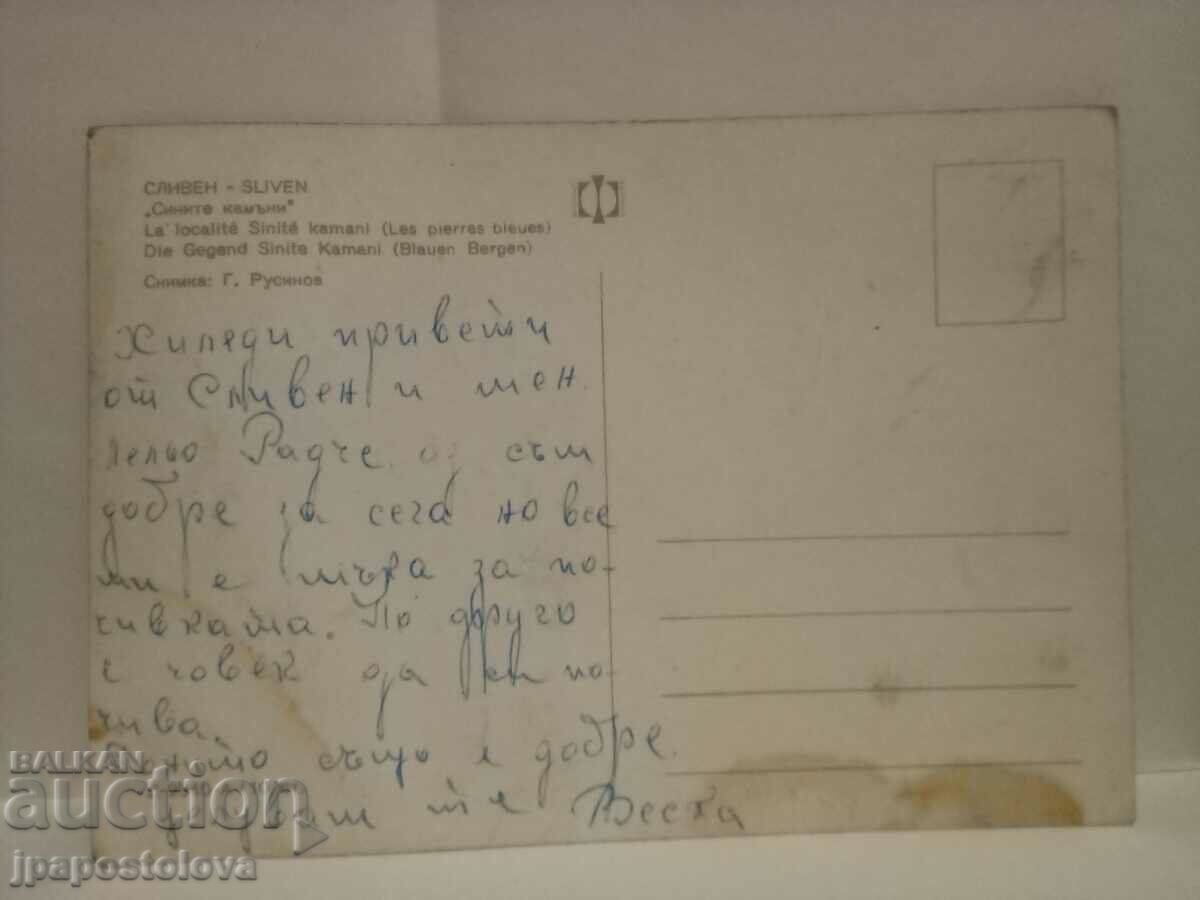 СЛИВЕН - SLIVEN
„Сините камъни"
La localité Sinité kamani (Les pierres bleues)
Die Gegend Sinite Kamani (Blauen Bergen)
Снимка: Г. Русинов
Хиляди привети
от Сливен и мен.
лельо Радче, аз съм
добре за сега но все
ми е мъка за по-
чивката. По друго
е човек да си по-
чива.
също е добре.
те Веска
BALKAN
auction
jpapostolova